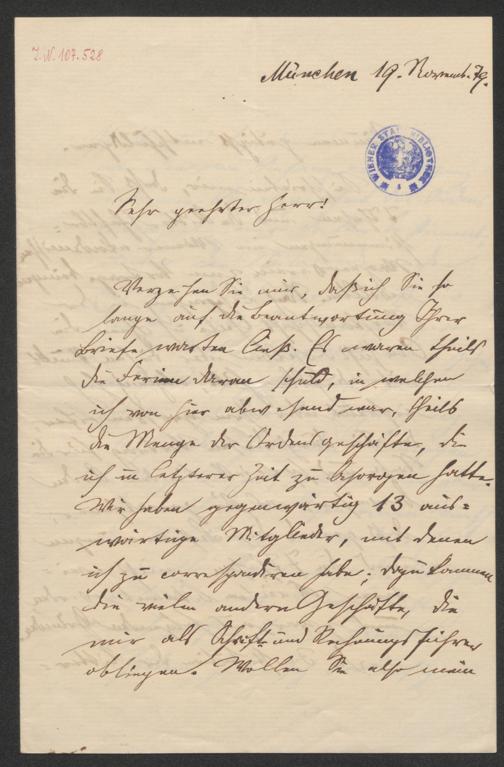 I.N. 107.528
München 19. Novemb. 79.
WIENER STADTBIBLIOTHEK
Sehr geehrter Herr!
Verzeihen Sie mir, daß ich Sie so
lange auf die Beantwortung Ihrer
Briefe warten ließ. Es waren theils
die Ferien daran schuld, in welchen
ich von hier abwesend war, theils
die Menge der Ordensgeschäfte, die
ich in letzterer Zeit zu besorgen hatte.
Wir haben gegenwärtig 13 aus=
wärtige Mitglieder, mit denen
ich zu correspondiren habe; dazu kommen
die vielen andern Geschäfte, die
mir als Schrift- und Rechnungsführer
obliegen. Wollen Sie also mein